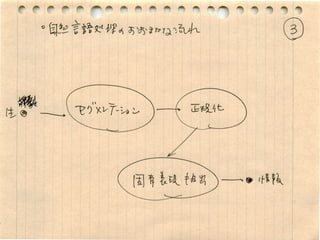 。自然言語処理のおおまかな流れ
3
生
セグメンテーション
正規化
固有表現抽出
情報